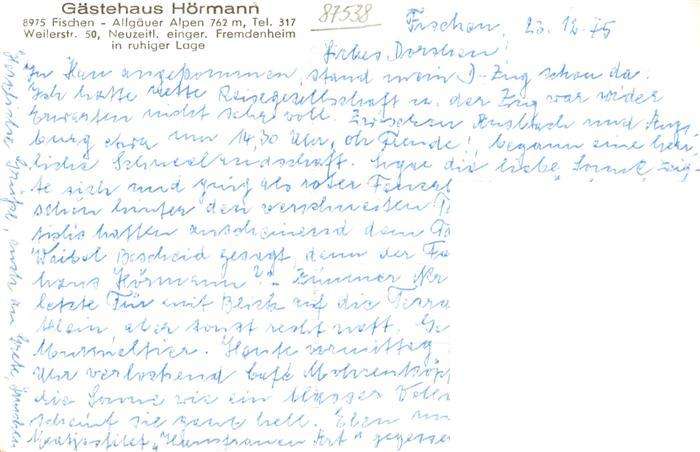 Gästehaus Hörmann
8975 Fischen - Allgäuer Alpen 762 m, Tel. 317
Weilerstr. 50, Neuzeitl. einger. Fremdenheim
in ruhiger Lage
87538
Fischen, 25.12.75
Liebes Dorchen!
In angekommen, stand mein D-Zug schon da.
Ich hatte nette Reisegesellschaft u. der Zug war wider
Erwarten nicht sehr voll. Zwischen Ansbach und Augs
burg etwa um 14,30 Uhr, oh Freude!, begann eine herr
liche Schneelandschaft. Sogar die liebe Sonne zeig-
te sich und ging als roter
schön hinter den verschneiten
hatten anscheinend dem
Weibel Bescheid gesagt, denn der
haus Hörmann?" - Zimmer Nr
letzte Tür mit Blick auf die Terra
klein aber sonst recht nett. Ge
Murmeltier. Heute vormittag
Uhr verlockend Café
die Sonne wie ein blasser Voll
scheint sie ganz hell. Eben
"Hausfrauen Art" gegesse
Herzliche Grüße, auch an